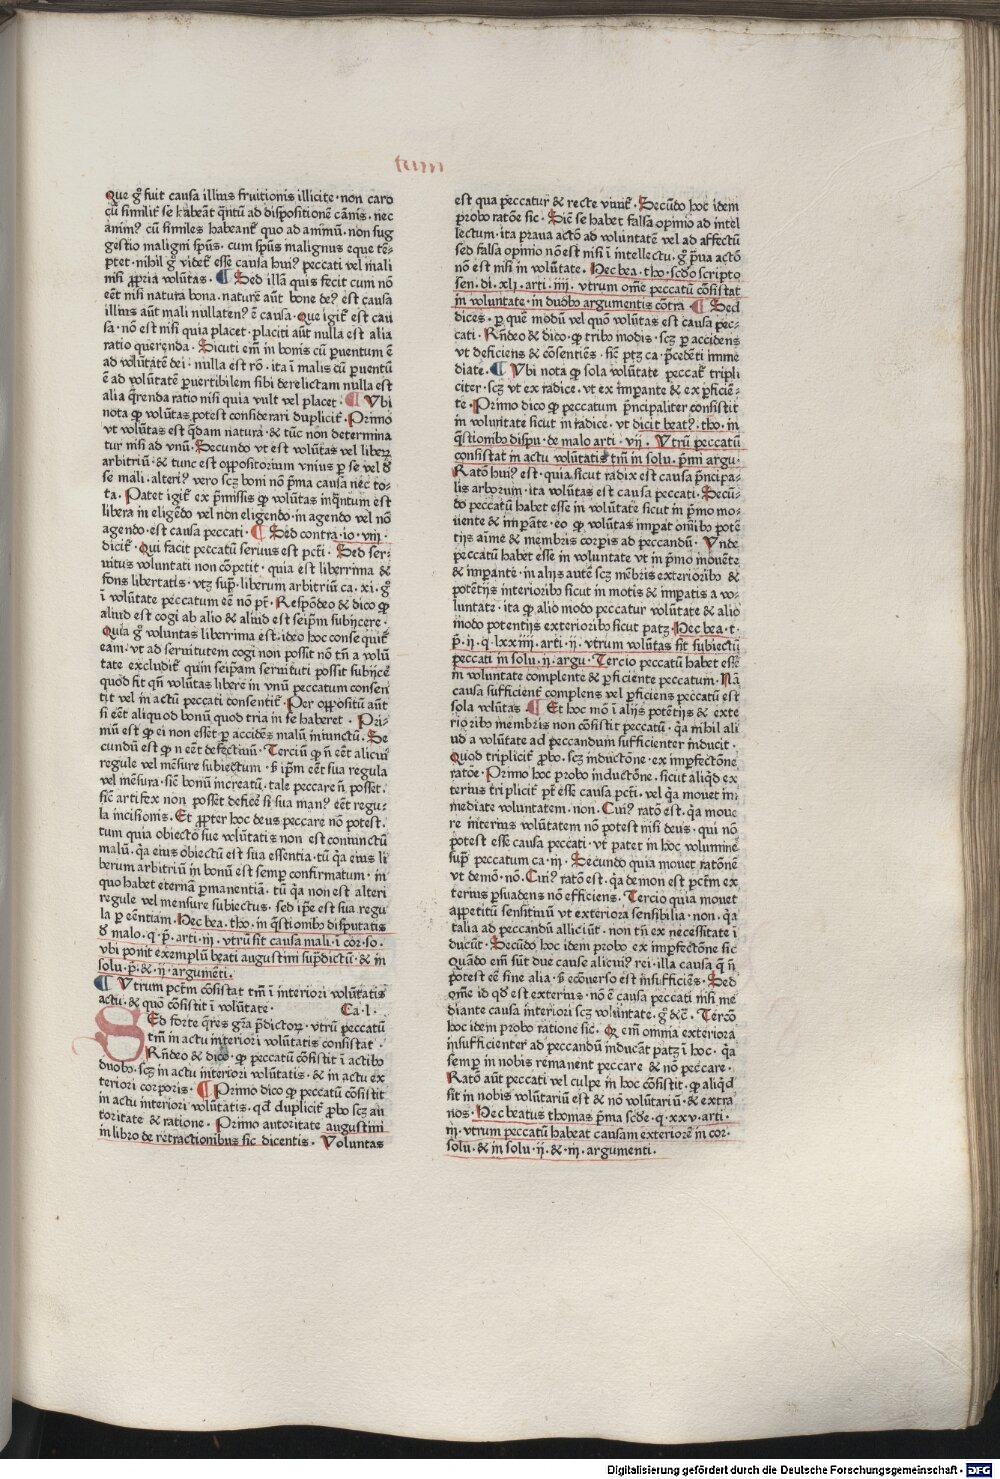 tum
Que gͦ fuit causa illius fruitionis illicite · non caro
cū similit̄ se habeāt q̄ntū ad dispositionē carnis · nec
animꝰ cū similes habeant̄ quo ad animū · non sug
gestio maligni spūs · cum spūs malignus eque tē⸗
ptet · nihil gͦ videt̄ esse causa huiꝰ peccati vel mali
nisi ꝓpria volūtas · ¶ Sed illā quis fecit cum nō
eēt nisi natura bona · nature aūt bone deꝰ est causa
illius aūt mali nullatenꝰ ē causa · Que igit̄ est cau
sa · nō est nisi quia placet · placiti aūt nulla est alia
ratio querenda · Sicuti em̄ in bonis cū ꝑuentum ē
ad volūtatē dei · nulla est rō · ita ī malis cū ꝑuentū
ē ad volūtatē ꝑuertibilem sibi derelictam nulla est
alia q̄renda ratio nisi quia vult vel placet · ¶ Vbi
nota ꝙ volūtas potest considerari duplicit̄ · Primo
vt volūtas est q̄dam natura · & tūc non determina
tur nisi ad vnū · Secundo vt est volūtas vel liberū
arbitriū · & tunc est oppositorium vnius ꝑ se vel ꝺ
se mali · alteriꝰ vero scꝫ boni nō p̄ma causa nec to⸗
ta · Patet igit̄ ex p̄missis ꝙ volūtas inq̄ntum est
libera in eligēdo vel non eligendo · in agendo vel nō
agendo · est causa peccati · ¶ Sed contra · io · viij ·
dicit̄ · Qui facit peccatū seruus est pctī · Sed ser⸗
uitus voluntati non cōpetit · quia est liberrima &
fons libertatis · vtꝫ supͣ · liberum arbitriū ca · xi · gͦ
ī volūtate peccatum eē nō pt̄ · Respōdeo & dico ꝙ
aliud est cogi ab alio & aliud est seipm̄ subijcere ·
Quia gͦ voluntas liberrima est · ideo hoc consequit̄
eam · vt ad seruitutem cogi non possit nō tn̄ a volū
tate excludit̄ quin seipsam seruituti possit subijcē
quod fit qn̄ volūtas libere in vnū peccatum consen
tit vel in actū peccati consentit̄ · Per oppositū aūt
si eēt aliquod bonū quod tria in se haberet · Pri⸗
mū est ꝙ ei non esset ꝑ accidēs malū iniunctū · Se
cundū est ꝙ n̄ eēt defectiuū · Terciū ꝙ n̄ eēt alicui
regule vel mēsure subiectum · s̄ ip̄m eēt sua regula
vel mēsura · sic̄ bonū increatū · tale peccare n̄ posset ·
sic̄ artifex non posset deficē si sua manꝰ eēt regu⸗
la incisionis · Et ꝓpter hoc deus peccare nō potest ·
tum quia obiecto sue volūtatis non est coniunctū
malū · q̄a eius obiectū est sua essentia · tū q̄a eius li
berum arbitriū in bonū est semp̄ confirmatum · in
quo habet eternā ꝑmanentiā · tū q̄a non est alteri
regule vel mensure subiectus · sed ip̄e est sua regu
la ꝑ eēntiam · Hec bea · tho · in q̄stionibꝰ disputatis
ꝺ malo · q · p̄ · arti · iij · vtrū sit causa mali · ī cor · so ·
vbi ponit exemplū beati augustini sup̄dictū · & in
solu · p̄ · & · ij · argumēti ·
¶ Vtrum pctm̄ cōsistat tm̄ ī interiori volūtatis
actu · & quō cōsistit ī volūtate · Ca · l ·
SEd forte q̄res gr̄a p̄dictoꝝ · vtrū peccatū
tm̄ in actu interiori volūtatis consistat ·
Rn̄deo & dico · ꝙ peccatū cōsistit ī actibꝰ
duobꝰ · scꝫ in actu interiori volūtatis · & in actu ex
teriori corporis · ¶ Primo dico ꝙ peccatū cōsistit
in actu interiori volūtatis · qd̄ duplicit̄ ꝓbo scꝫ au
toritate & ratione · Primo autoritate augustini
in libro de retractionibus sic dicentis · Voluntas
est qua peccatur & recte viuit̄ · Secūdo hoc idem
probo ratōe sic · Sic̄ se habet falsa opinio ad intel
lectum · ita praua actō ad voluntatē vel ad affectū
sed falsa opinio nō est nisi ī intellectu · gͦ p̄ua actō
nō est nisi in volūtate · Hec bea · tho · scd̄o scripto
sen · di · xli · arti · iiij · vtrum om̄e peccatū cōsistat
in voluntate · in duobꝰ argumentis cōtra ¶ Sed
dices · ꝑ quem modū vel quō volūtas est causa pec⸗
cati · Rn̄deo & dico · ꝙ tribꝰ modis · scꝫ ꝑ accidens
vt deficiens & cōsentiēs · sic̄ ptꝫ ca · p̄cedēti imme
diate · ¶ Vbi nota ꝙ sola volūtate peccat̄ tripli
citer · scꝫ vt ex radice · vt ex imꝑante & ex ꝑficiē⸗
te · Primo dico ꝙ peccatum p̄ncipaliter consistit
in voluntate sicut in radice · vt dicit beatꝰ · tho · in
q̄stionibꝰ dispu · de malo arti · vij · Vtrū peccatū
consistat in actu volūtatis tm̄ in solu · p̄mi argu ·
Ratō huiꝰ est · quia sicut radix est causa p̄ncipa⸗
lis arborum · ita volūtas est causa peccati · Secū⸗
do peccatū habet esse in volūtate sicut in p̄mo mo⸗
uente & imꝑāte · eo ꝙ volūtas imꝑat om̄ibꝰ potē
tijs aīme & membris corꝑis ad peccandū · Vnde
peccatū habet esse in voluntate vt in p̄mo mouēte
& imꝑante · in alijs autē scꝫ mēbris exterioribꝰ &
potētijs interioribꝰ sicut in motis & imꝑatis a vo⸗
luntate · ita ꝙ alio modo peccatur volūtate & alio
modo potentijs exterioribꝰ sicut patꝫ · Hec bea · t ·
p̄ · ij · q · lxxiiij · arti · ij · vtrum volūtas sit subiectū
peccati in solu · ij · argu · Tercio peccatū habet esse
in voluntate complente & ꝑficiente peccatum · Nā
causa sufficient̄ complens vel ꝑficiens peccatū est
sola volūtas ¶ Et hoc mō ī alijs potētijs & exte
rioribꝰ membris non cōsistit peccatū · q̄a nihil ali
ud a volūtate ad peccandum sufficienter inducit ·
Quod triplicit̄ ꝓbo · scꝫ inductōne · ex imꝑfectōne
ratōe · Primo hoc probo inductōne · sicut aliqd̄ ex
terius tripliciter pt̄ esse causa pctī · vel q̄a mouet im⸗
mediate voluntatem · non · Cuiꝰ ratō est · q̄a moue
re interius volūtatem nō potest nisi deus · qui nō
potest esse causa peccati · vt patet in hoc volumine
supͣ peccatum ca · iij · Secundo quia mouet ratōnē
vt demō · nō · Cuiꝰ ratō est · q̄a demon est pctm̄ ex
terius ꝑsuadens nō efficiens · Tercio quia mouet
appetitū sensitiuū vt exteriora sensibilia · non · q̄a
talia ad peccandū alliciūt · non tn̄ ex necessitate ī
ducūt · Secūdo hoc idem probo ex imꝑfectōne sic
Quādo em̄ sūt due cause alicuiꝰ rei · illa causa q̄ n̄
potest eē sine alia · s̄ ecōuerso est īsufficiēs · Sed
om̄e id qd̄ est exterius · nō ē causa peccati nisi me
diante causa interiori scꝫ voluntate · gͦ &c̄ · Tercō
hoc idem probo ratione sic · Q̄ em̄ omnia exteriora
insufficienter ad peccandū inducāt patꝫ ī hoc · q̄a
semp̄ in nobis remanent peccare & nō peccare ·
Ratō aūt peccati vel culpe in hoc cōsistit · ꝙ aliqd̄
sit in nobis volūtariū est & nō volūtariū · & extra
nos · Hec beatus thomas p̄ma scd̄e · q · xxv · arti ·
iij · vtrum peccatū habeat causam exteriorē in cor ·
solu · & in solu · ij · & · iij · argumenti ·
Digitalisierung gefördert durch die Deutsche Forschungsgemeinschaft - DFG